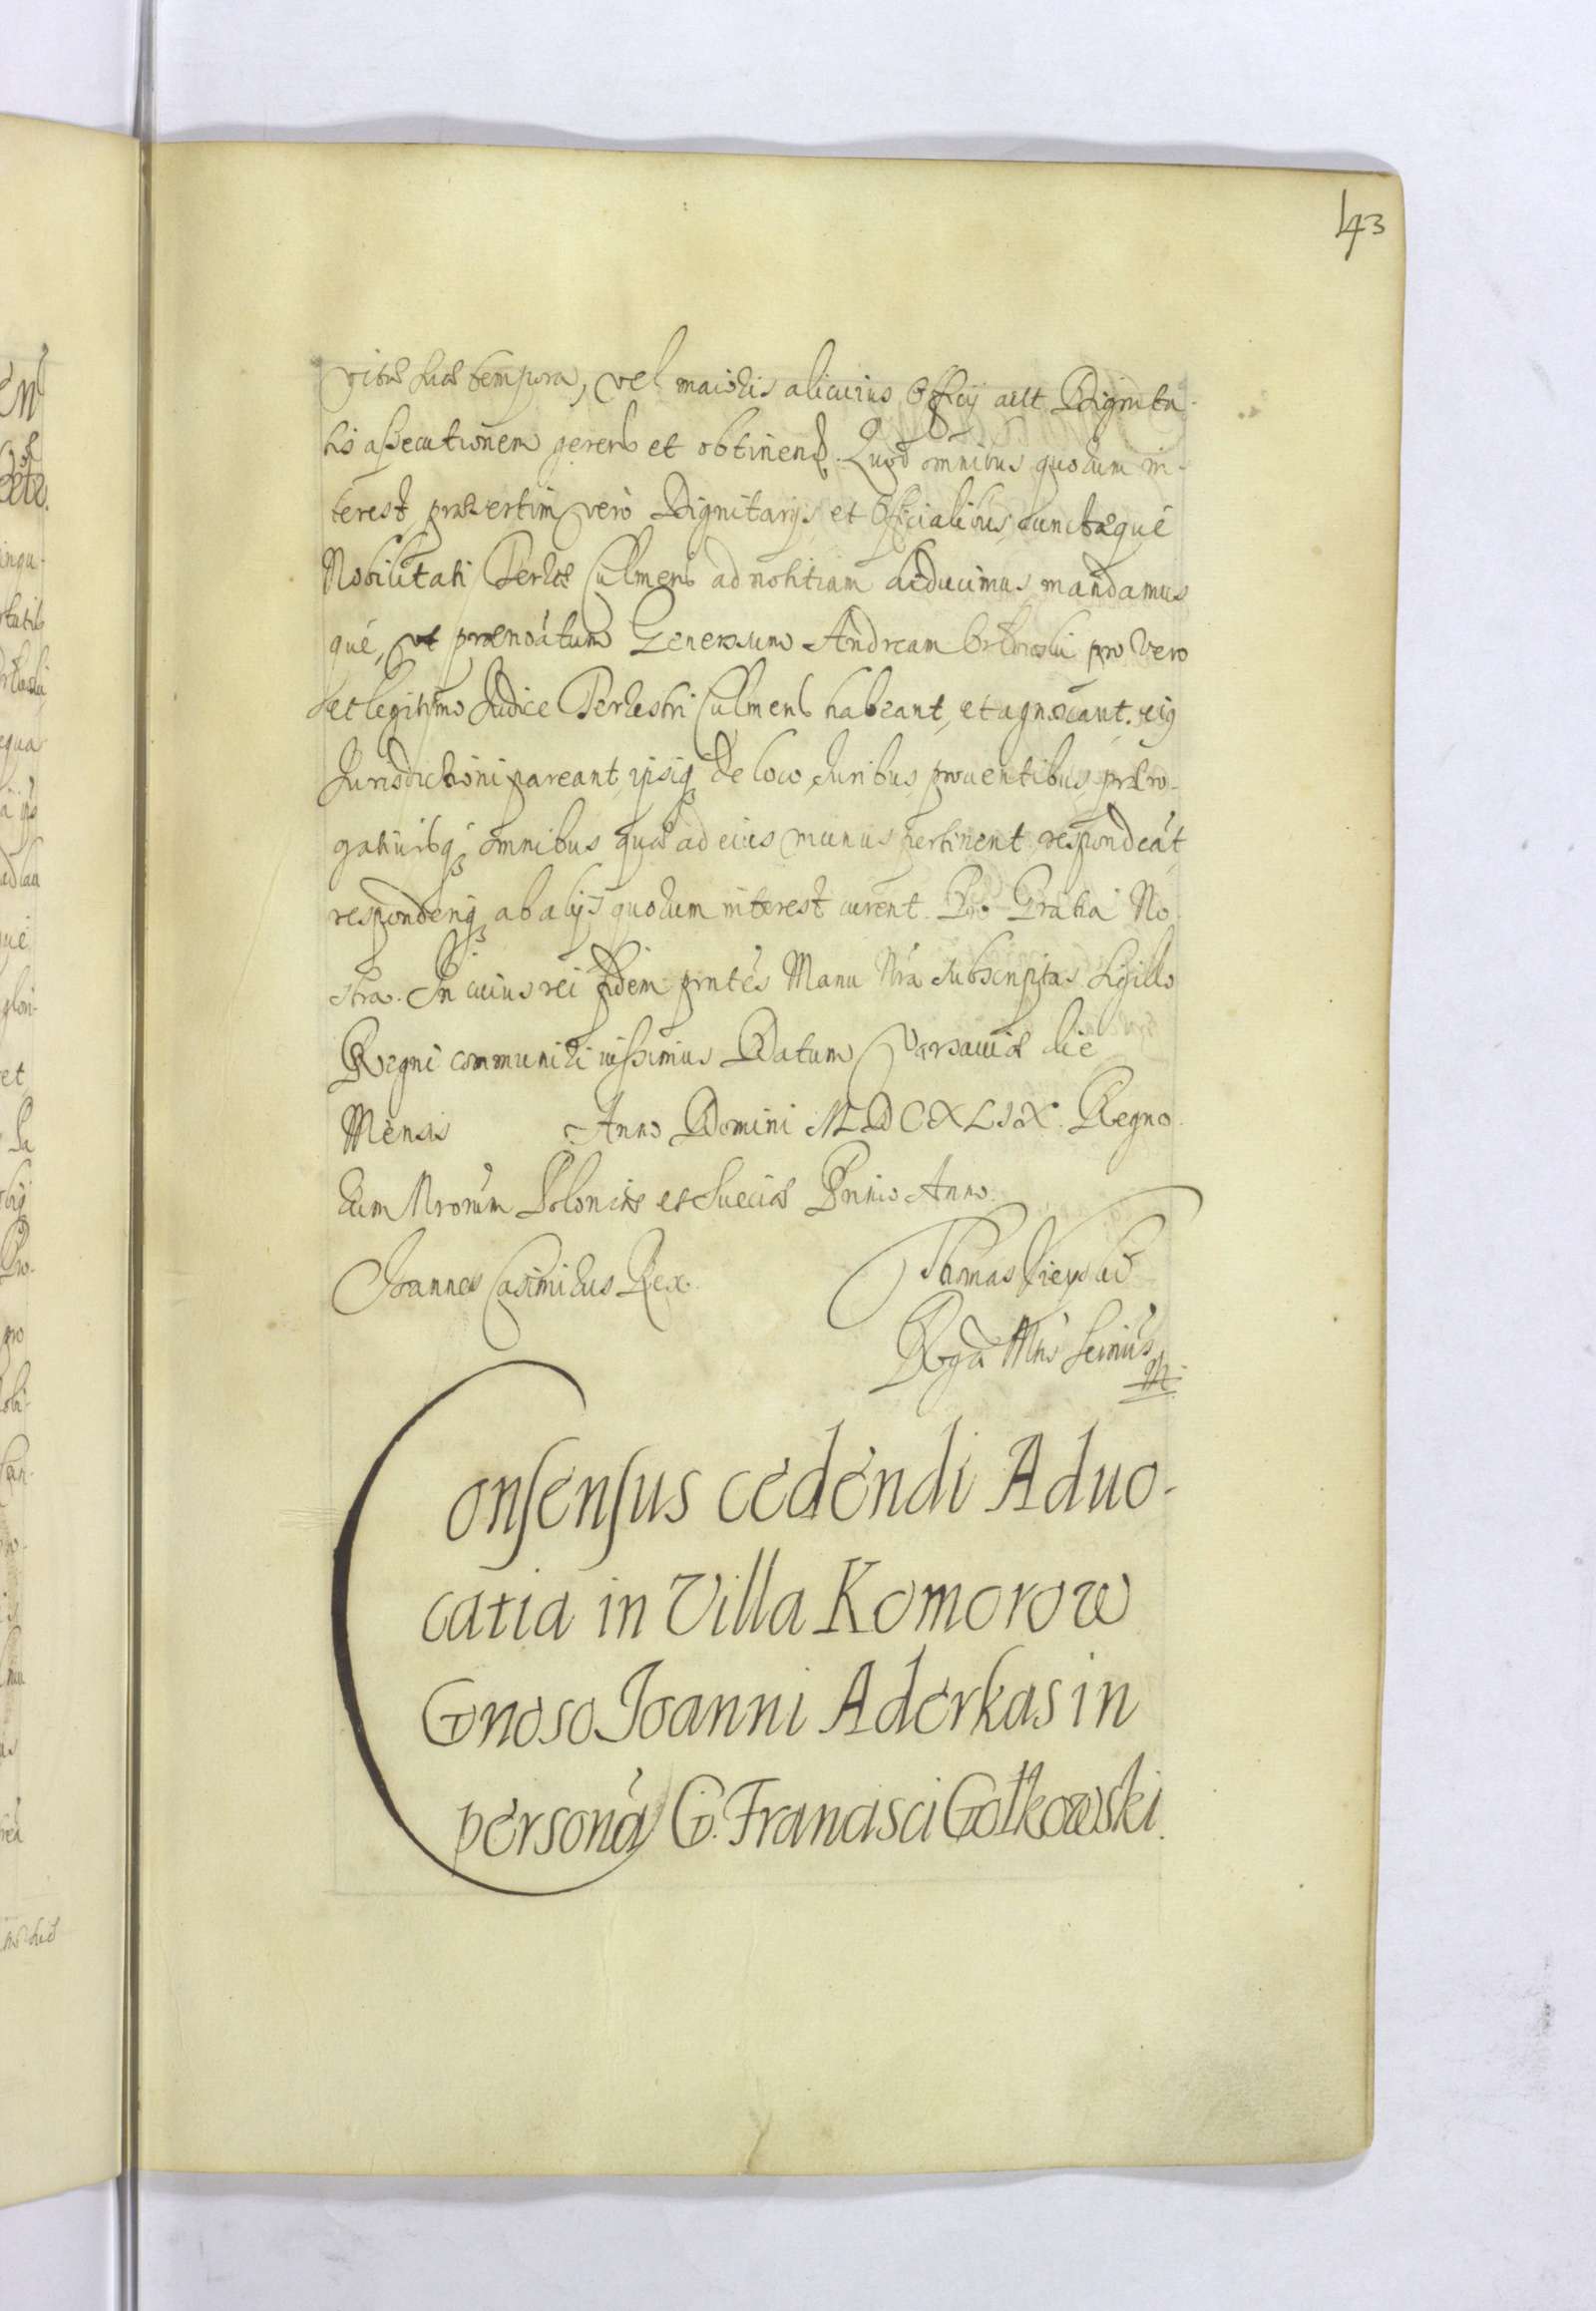 43
vitæ suæ tempora, vel maioris alicuius Officij aut Dignita-
tis assecutionem gerend et obtinend. Quod omnibus quorum in-
terest, præsertim vero Dignitarijs, et Officialibus, cunctæque
Nobilitati Terræ Culmens ad notitiam deducimus, mandamus
que, ut prænotatum Generosum Andream pro vero
et legitimo Judice Terrestri Culmens habeant, et agnoscant, eiq
Jurisdictioni pareant, ipsiq de loco, Juribus, prouentibus, præro-
gatiuisq omnibus quæ ad eius munus pertinent, respondeāt
responderiq ab alijs quorum interest curent. Pro Gratia No-
stra. In cuius rei fidem pntes Manu Nrā subscriptas Sigillo
Regni communiri iussimus Datum Varsauiæ die
Mensis Anno Domini MDCXLIX. Regno-
rum Nrorum Poloniæ et Sueciæ Primo Anno.
Joannes Casimirus Rex. Thomas
Regæ Mtis
Consensus cedendi Aduo-
catia in Villa Komorow
Gnoso Joanni Aderkas in
personā G. Francisci Gołkowski.